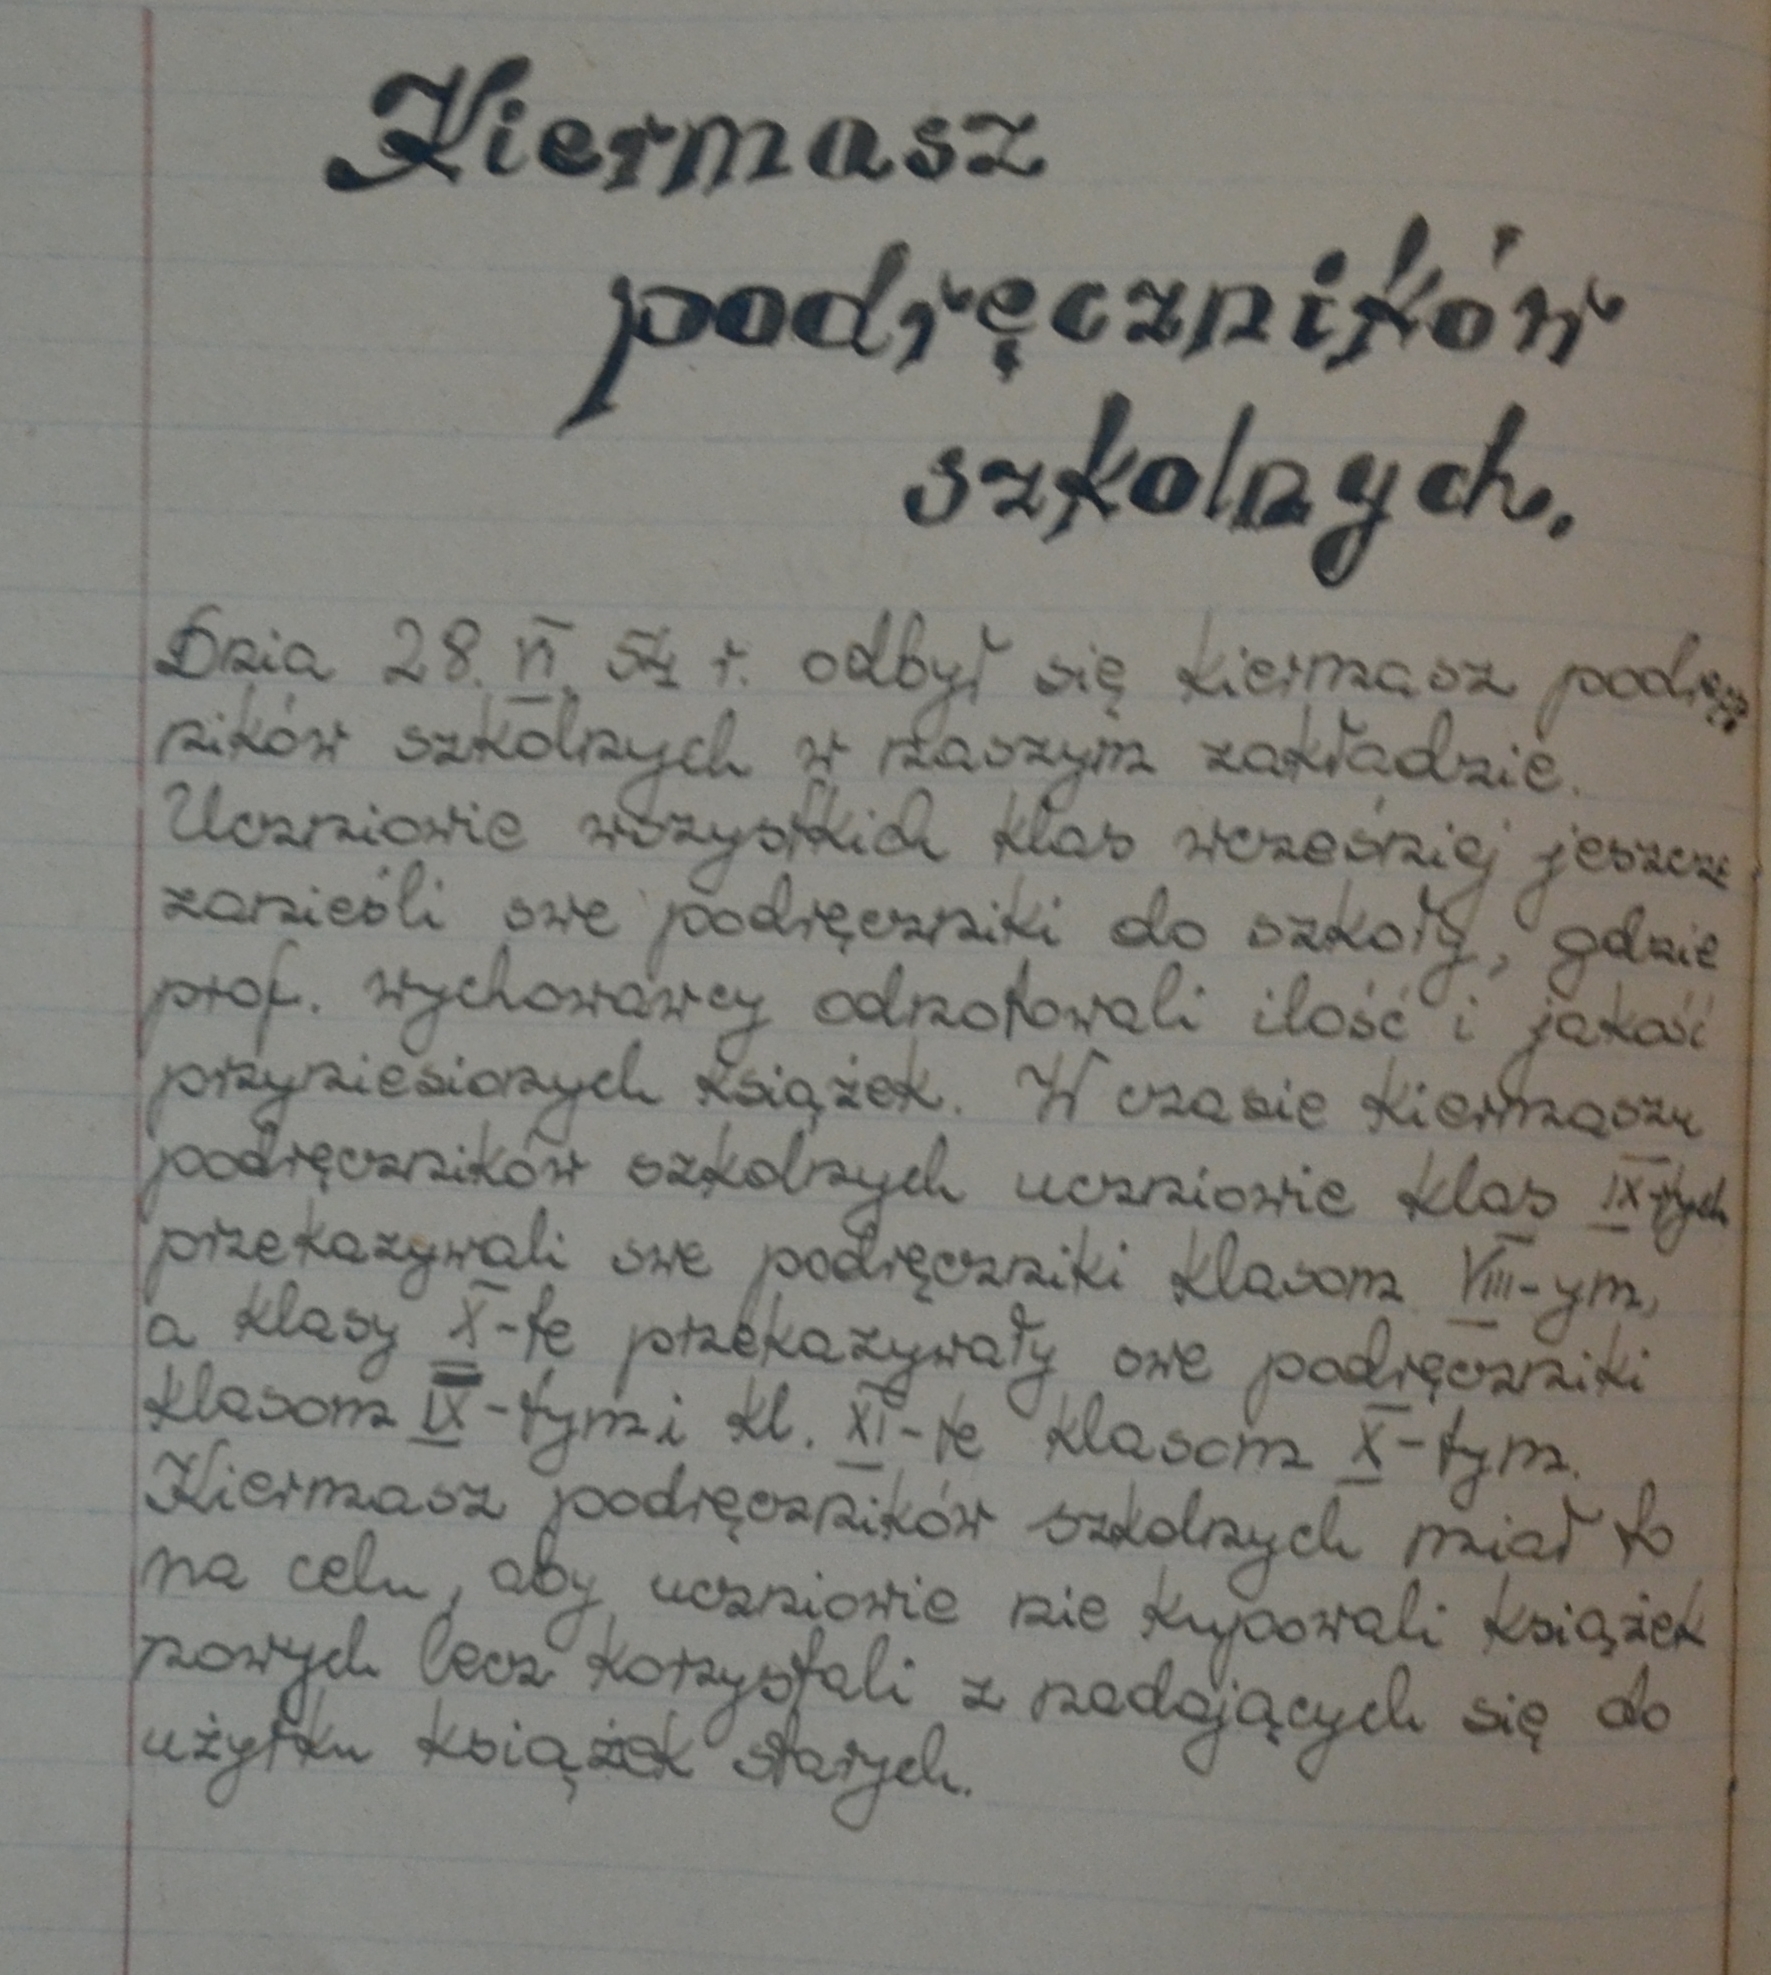 Kiermasz
podręczników
szkolnych.
Dnia 28. VI. 54 r. odbył się kiermasz podręcz
ników szkolnych w naszym zakładzie.
Uczniowie wszystkich klas wcześniej jeszcze
zanieśli swe podręczniki do szkoły, gdzie
prof. wychowawcy odnotowali ilość i jakość
przyniesionych książek. W czasie kiermaszu
podręczników szkolnych uczniowie klas IX-tych
przekazywali swe podręczniki klasom VIII-ym,
a klasy X-te przekazywały swe podręczniki
klasom IX-tym i kl. XI-te klasom X-tym.
Kiermasz podręczników szkolnych miał to
na celu, aby uczniowie nie kupowali książek
nowych lecz korzystali z nadających się do
użytku książek starych.